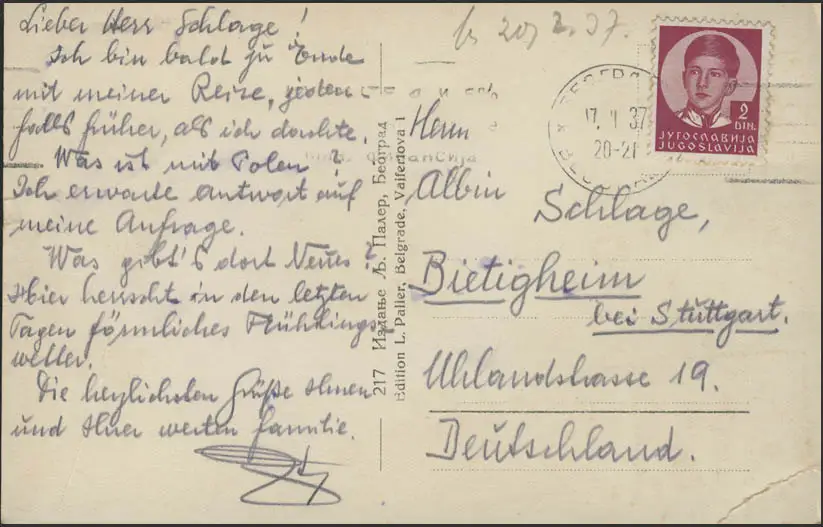 Lieber Herr Schlage!
Ich bin bald zu Ende
mit meiner Reise, jeden-
falls früher, als ich dachte.
Was ist mit Polen?
Ich erwarte Antwort auf
meine Anfrage.
Was gibt's dort Neues?
Hier herrscht in den letzten
Tagen förmliches Frühlings-
wetter.
Die herzlichsten Grüße Ihnen
und Ihrer werten Familie.
217 Издање Љ. Палер, Београд
Edition L. Paller, Belgrade, Vaifertova 1
37.
2
DIN.
ЈУГОСЛАВИЈА
JUGOSLAVIJA
17. 37
20-21
Herrn
Albin
Schlage,
Bietigheim
bei Stuttgart.
Uhlandstrasse 19.
Deutschland.